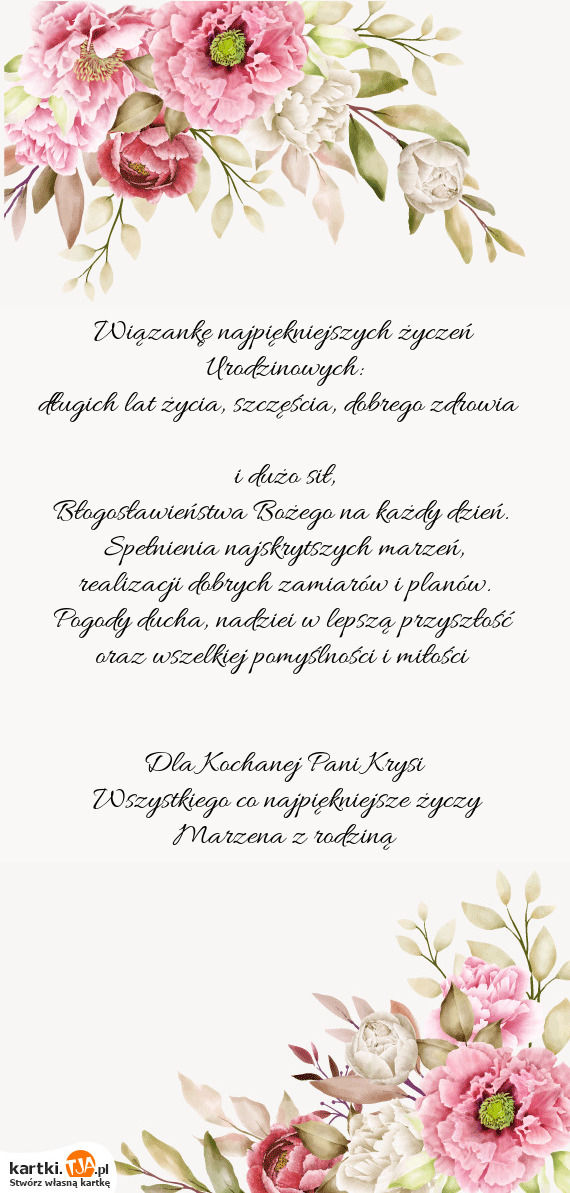 Wiązankę najpiękniejszych życzeń
Urodzinowych:
długich lat życia, szczęścia, dobrego zdrowia
i dużo sił,
Błogosławieństwa Bożego na każdy dzień.
Spełnienia najskrytszych marzeń,
realizacji dobrych zamiarów i planów.
Pogody ducha, nadziei w lepszą przyszłość
oraz wszelkiej pomyślności i miłości
Dla Kochanej Pani Krysi
Wszystkiego co najpiękniejsze życzy
Marzena z rodziną
kartki.TJA.pl
Stwórz własną kartkę